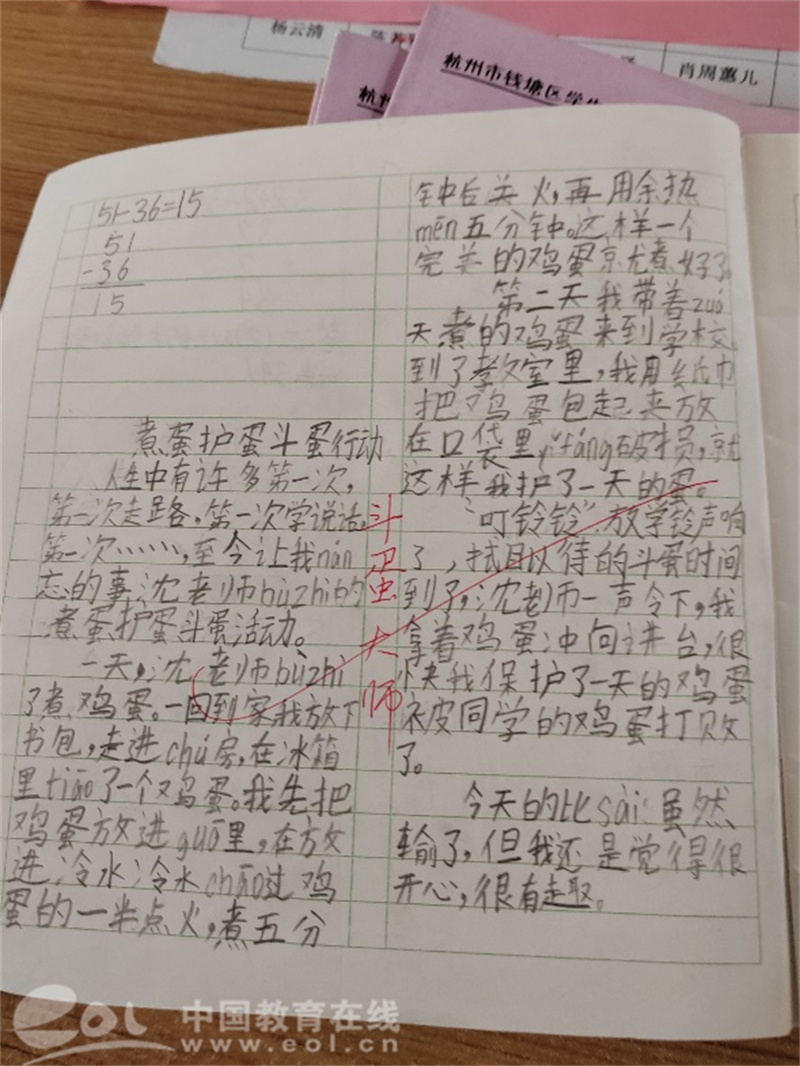 杨云清
肖周蕙儿
杭州市钱塘区学生
杭州
51-36=15
51
-36
15
煮蛋护蛋斗蛋行动
人生中有许多第一次，
第一次走路，第一次学说话，
第一次……，至今让我nán
忘的事沈老师bùzhì的
煮蛋护蛋斗蛋活动。
一天，沈老师bùzhì
了煮鸡蛋。一回到家我放下
书包，走进chú房，在冰箱
里tiāo了一个鸡蛋。我先把
鸡蛋放进guō里，在放
进冷水冷水chāo过鸡
蛋的一半点火，煮五分
斗蛋大师
钟后关火，再用余热
mēn五分钟。这样一个
完美的鸡蛋就煮好了。
第二天我带着zuó
天煮的鸡蛋来到学校。
到了教室里，我用纸巾
把鸡蛋包起来放
在口袋里yǐfáng破损，就
这样我护了一天的蛋。
“叮铃铃”放学铃声响
了，拭目以待的斗蛋时间
到了，沈老师一声令下，我
拿着鸡蛋冲向讲台，很
快我保护了一天的鸡蛋
被同学的鸡蛋打败
了。
今天的比sài虽然
输了，但我还是觉得很
开心，很有趣。
eol 中国教育在线
www.eol.cn